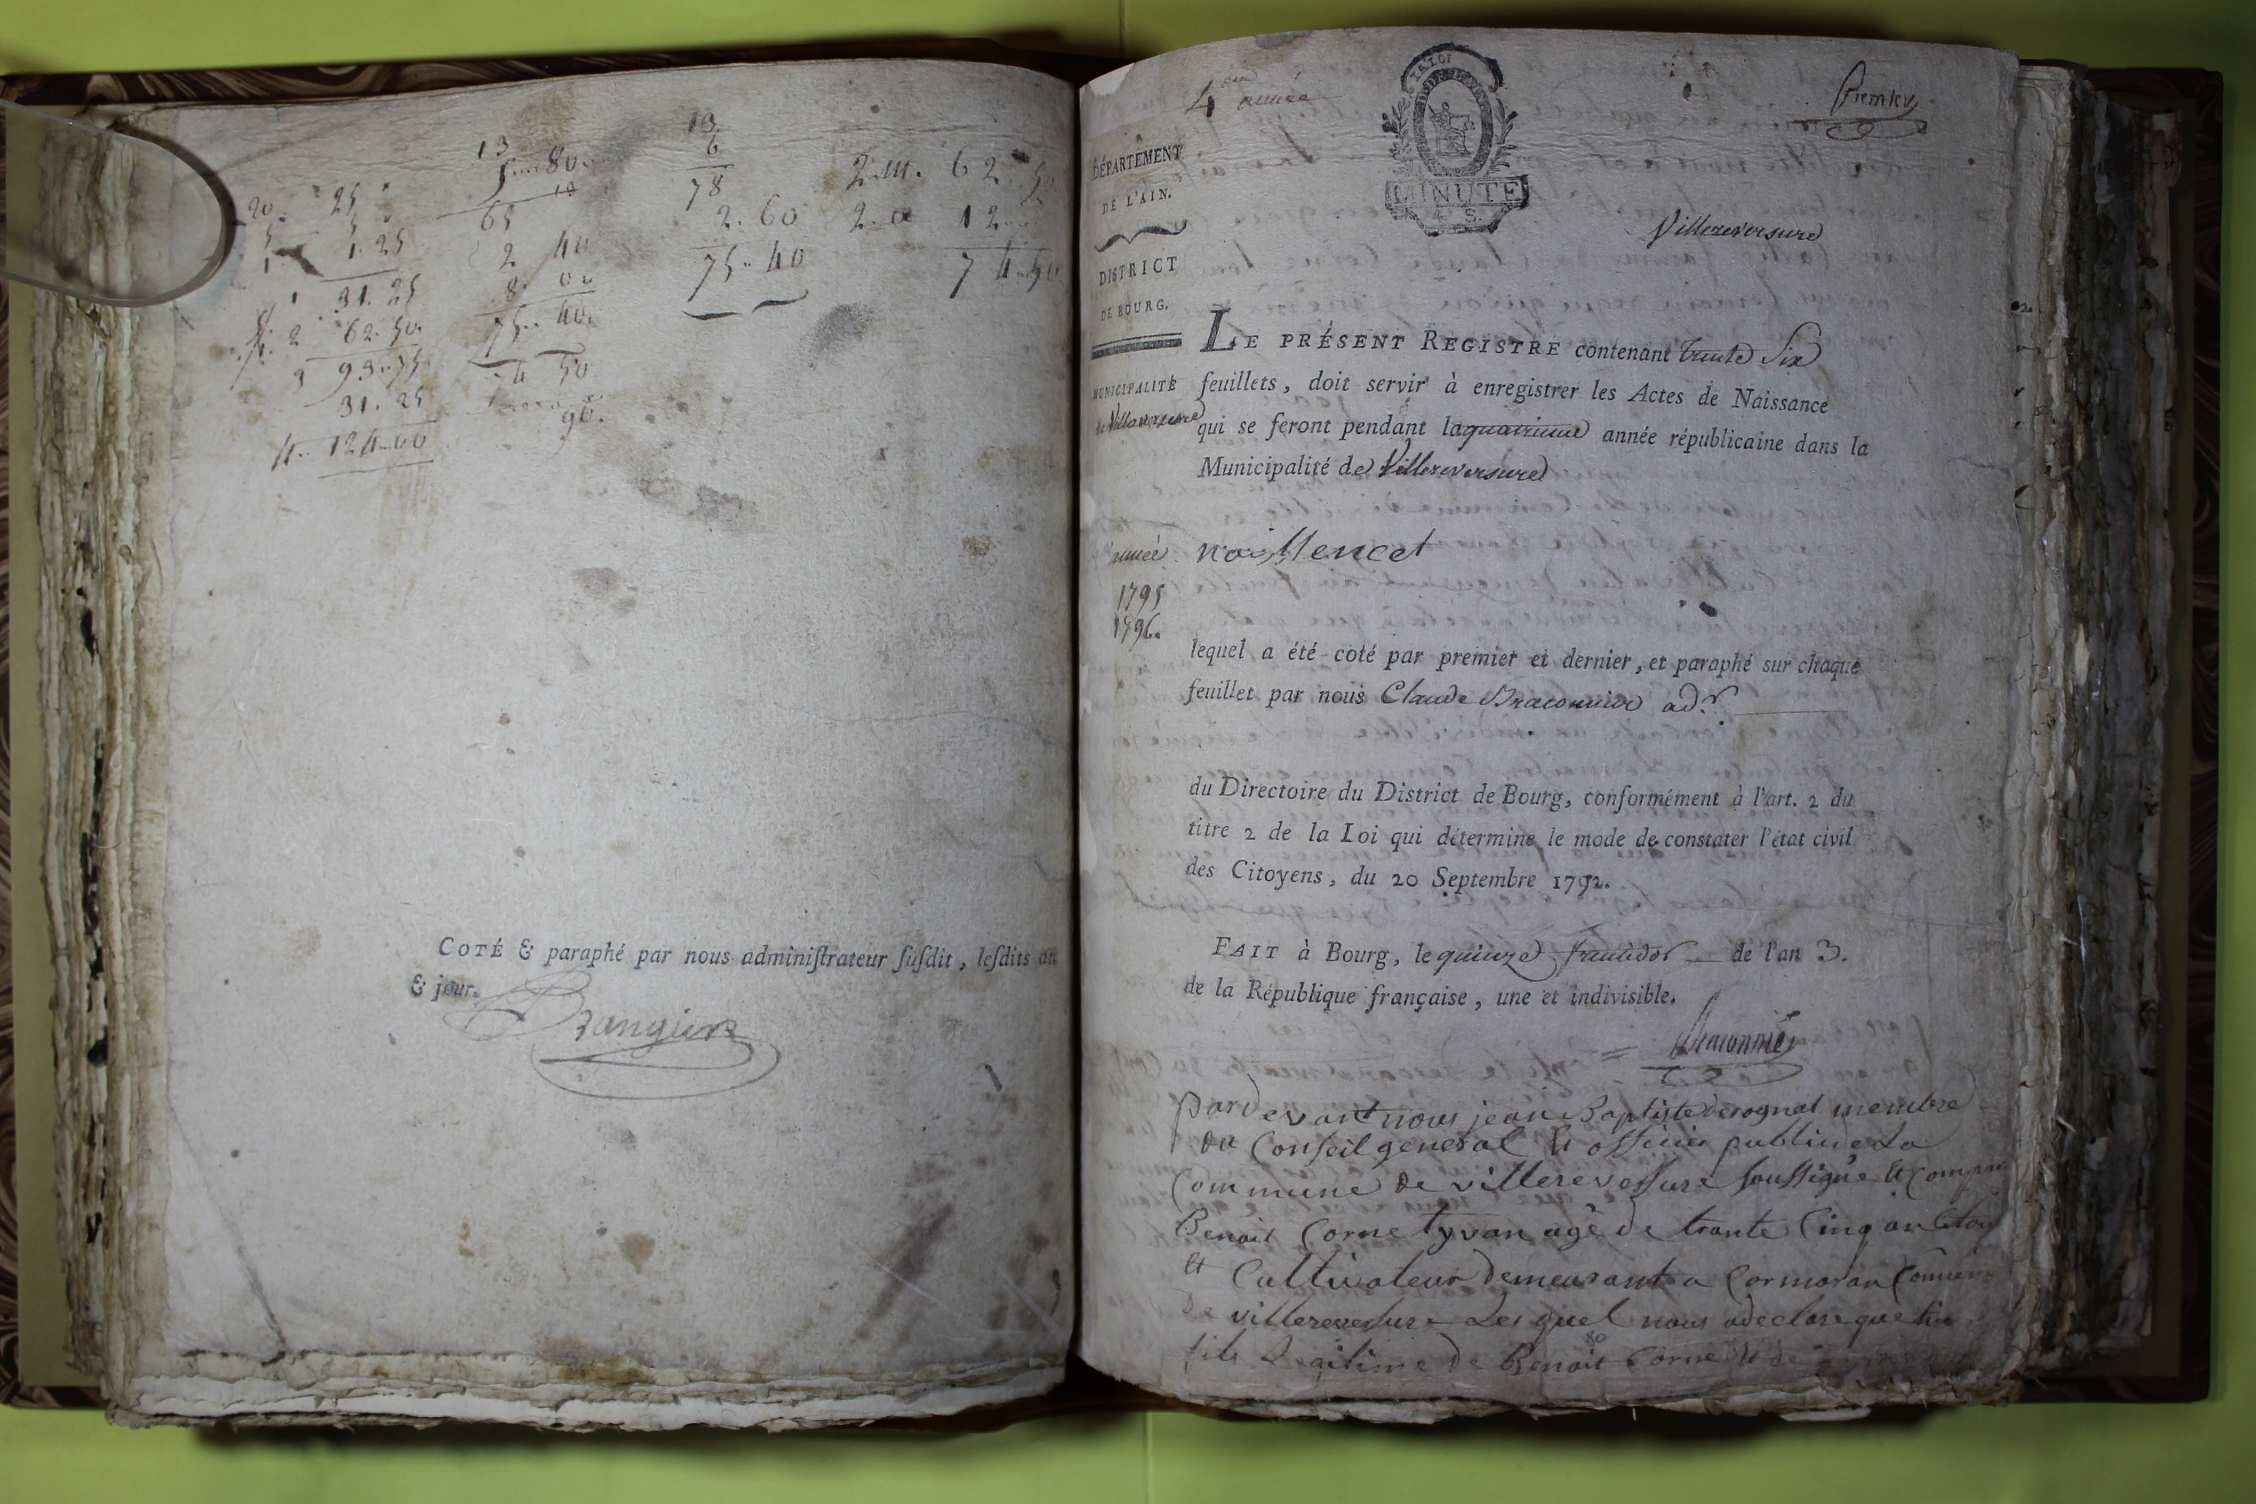 20. 25
5 5
1. 1. 25
1 31. 25
2 62. 50.
3 93. 75
31. 25
4. 124. 00
13
5. 80.
13
65
2 40
8. 00
75. 40.
4 50
96.
13
6
78
2. 60
75. 40
2. m. 62. 50
2. a 12.
74. 50
COTÉ & paraphé par nous administrateur susdit, lesdits an
& jour.
Brangier
4 eme année
LA LOI
MINUTE
4. S.
Premier
DÉPARTEMENT
DE L'AIN.
DISTRICT
DE BOURG.
MUNICIPALITÉ
de Villereversure
Villereversure
LE PRÉSENT REGISTRE contenant trente Six
feuillets, doit servir à enregistrer les Actes de Naissance
qui se feront pendant la quatrieme année républicaine dans la
Municipalité de Villereversure
année naissencet
1795
1796.
lequel a été coté par premier et dernier, et paraphé sur chaque
feuillet par nous Claude Braconnier adr
du Directoire du District de Bourg, conformément à l'art. 2 du
titre 2 de la Loi qui détermine le mode de constater l'état civil
des Citoyens, du 20 Septembre 1792.
FAIT à Bourg, le quinze fructidor de l'an 3.
de la République française, une et indivisible.
Braconnier
pardevant nous jean Baptiste derognat membre
du Conseil general et officier public de La
Commune de villereversure soussigné et
Benoit Corne tyvan agé de trante Cinq an
et Cultivateur demeurant a Cormoran
de villereversure Lesquel nous a declare que
fils Legitime de Benoit Corne et de